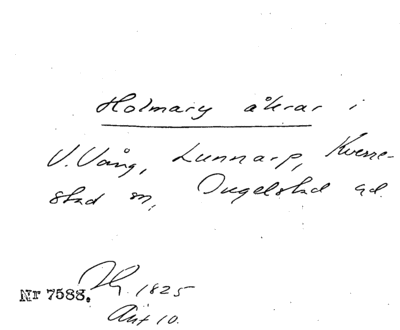 Holmary åkrar i
V. Vång, Lunnarp, Kverre-
stad sn, Ingelstad hd.
Nr 7588. 1825
Akt 10.